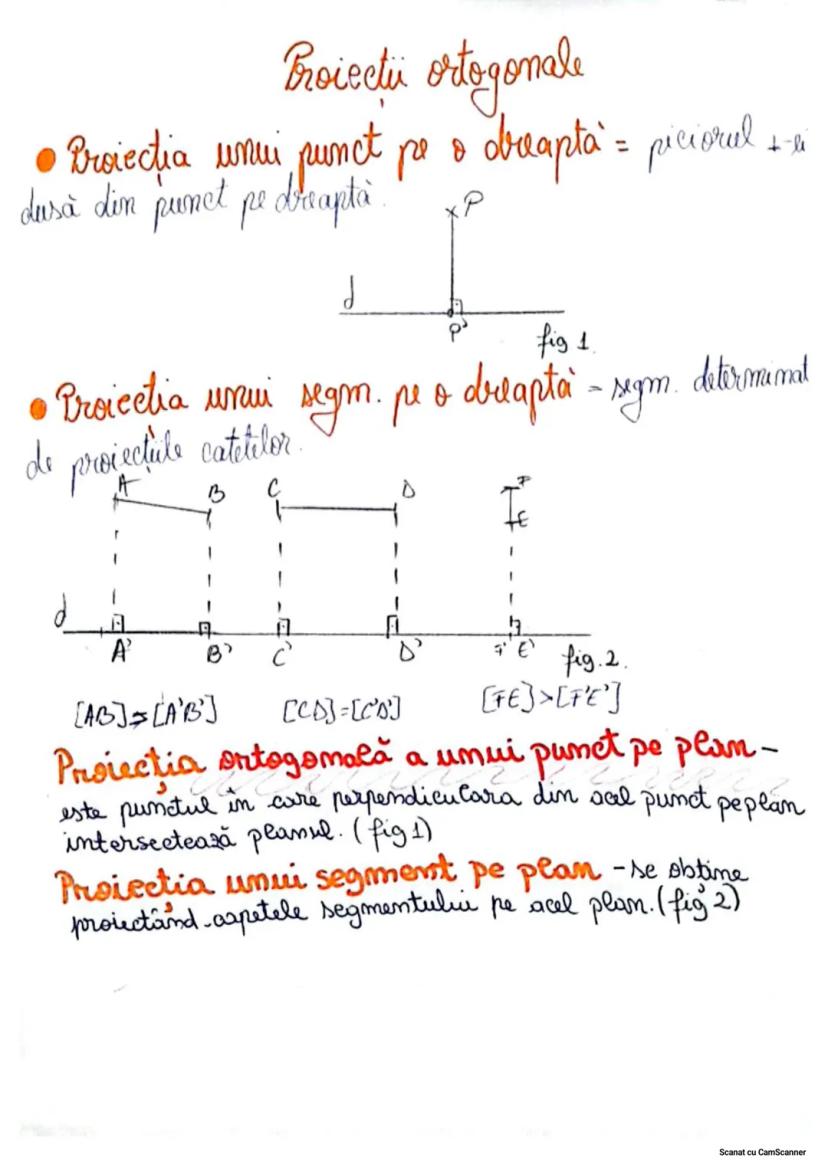 Proiecții ortogonale
• Proiecția unui punct pe o dreaptă = piciorul ⊥-lei
dusă din punct pe dreaptă.
P
d
P'
fig 1.
• Proiectia unui segm. pe o dreaptă - segm. determinat
de proiecțiile catetelor.
A B C D F
E
d
A' B' C' D' F' E' fig. 2.
[AB]≥[A'B'] [CD]=[C'D'] [FE]>[F'E']
Proiecția ortogonală a unui punct pe plan -
este punctul în care perpendiculara din acel punct pe plan
intersectează planul. (fig 1)
Proiectia unui segment pe plan - se obține
proiectând capetele segmentului pe acel plan. (fig 2)
Scanat cu CamScanner